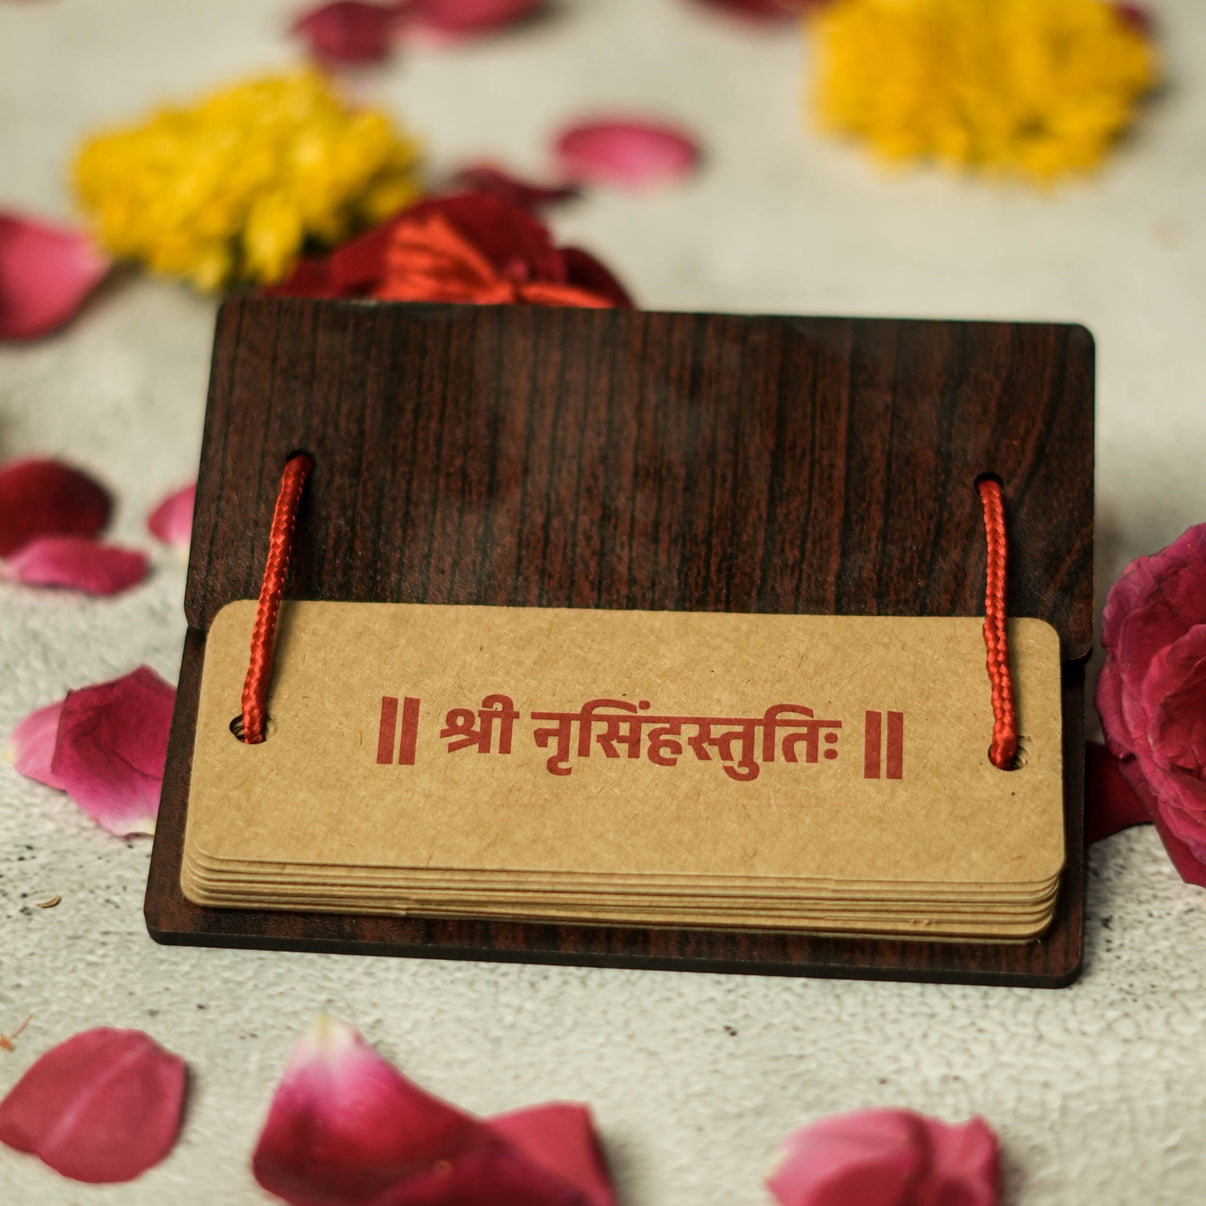 ॥ श्री नृसिंहस्तुतिः ॥